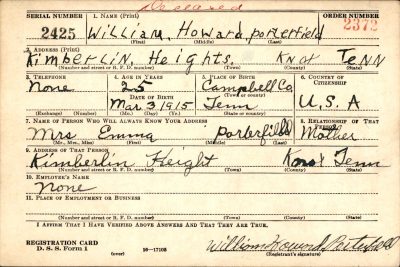 Deceased
SERIAL NUMBER 1. NAME (Print) ORDER NUMBER
2425 William, Howard, porterfield 2372
(First) (Middle) (Last)
2. ADDRESS (Print)
Kimberlin, Heights. Knox TENN
(Number and street or R. F. D. number) (Town) (County) (State)
3. TELEPHONE 4. AGE IN YEARS 5. PLACE OF BIRTH 6. COUNTRY OF CITIZENSHIP
None 25 Campbell Co
DATE OF BIRTH (Town or county)
Mar 3 1915 Tenn U.S.A
(Exchange) (Number) (Mo.) (Day) (Yr.) (State or country)
7. NAME OF PERSON WHO WILL ALWAYS KNOW YOUR ADDRESS 8. RELATIONSHIP OF THAT PERSON
Mrs Emma Porterfield Mother
(Mr., Mrs., Miss) (First) (Middle) (Last)
9. ADDRESS OF THAT PERSON
Kimberlin Height Knox Tenn
(Number and street or R. F. D. number) (Town) (County) (State)
10. EMPLOYER'S NAME
None
11. PLACE OF EMPLOYMENT OR BUSINESS
(Number and street or R. F. D. number) (Town) (County) (State)
I AFFIRM THAT I HAVE VERIFIED ABOVE ANSWERS AND THAT THEY ARE TRUE.
REGISTRATION CARD
D. S. S. Form 1 (over) 16—17105 William Howard Porterfield
(Registrant's signature)